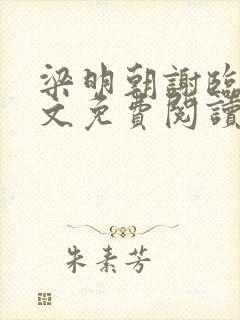 梁明朝謝臨
文免費閱讀
朱素芳